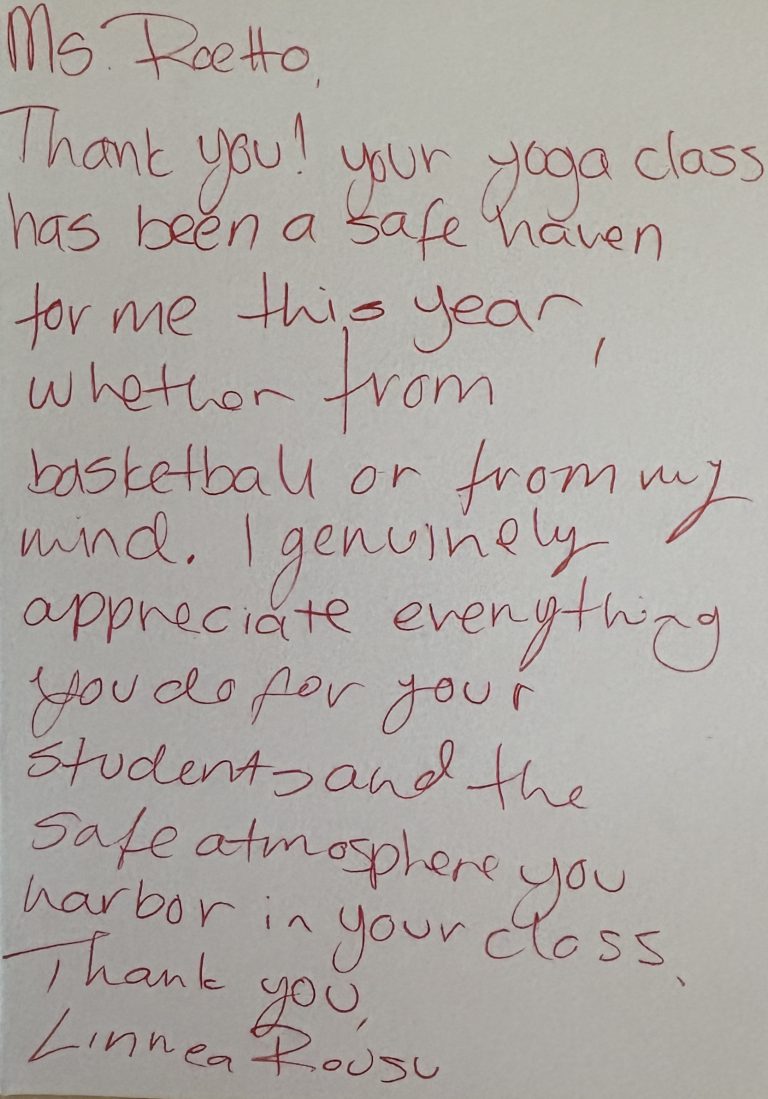 Ms. Roetto,
Thank you! your yoga class
has been a safe haven
for me this year,
whether from
basketball or from my
mind. I genuinely
appreciate everything
you do for your
students and the
safe atmosphere you
harbor in your class.
Thank you,
Linnea Rousu